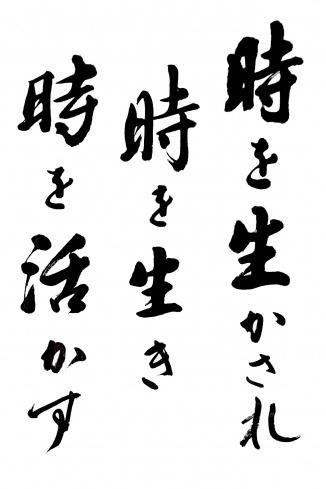 時を生かされ
時を生き
時を活かす